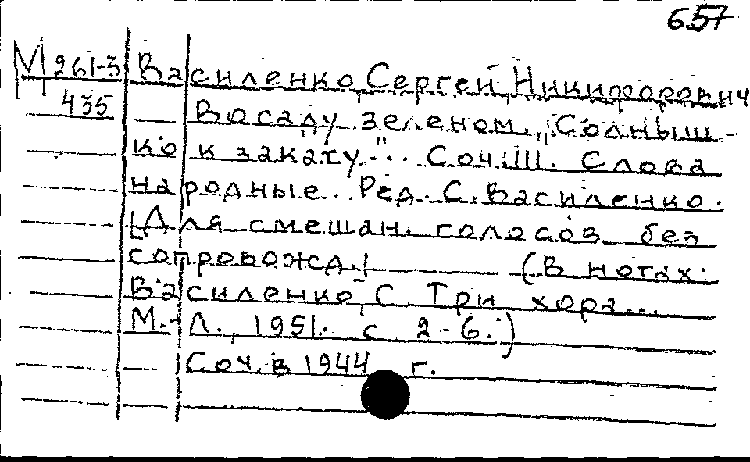 657
М 261-3 Василенко, Сергей Никифорович
435 В саду зеленом. „Солныш-
ко к закату“... Соч. III. Слова
народные. Ред. С. Василенко.
[Для смешан. голосов без
сопровожд.] (В нотах:
Василенко, С. Три хора...
М.-Л., 1951. с. 2-6.)
Соч. в 1944 г.